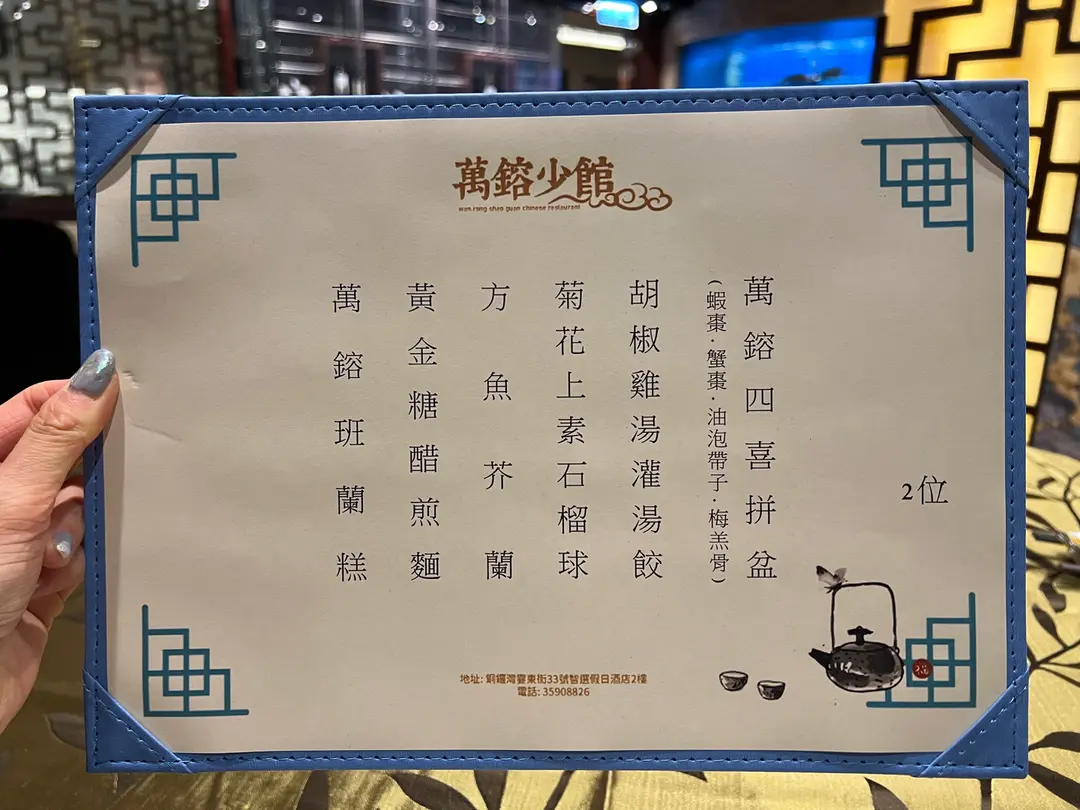 萬鎔少館
wan rong shao guan chinese restaurant
2位
萬鎔四喜拼盆
(蝦棗·蟹棗·油泡帶子·梅羔骨)
胡椒雞湯灌湯餃
菊花上素石榴球
方魚芥蘭
黃金糖醋煎麵
萬鎔班蘭糕
福
地址: 銅鑼灣霎東街33號智選假日酒店2樓
電話: 35908826